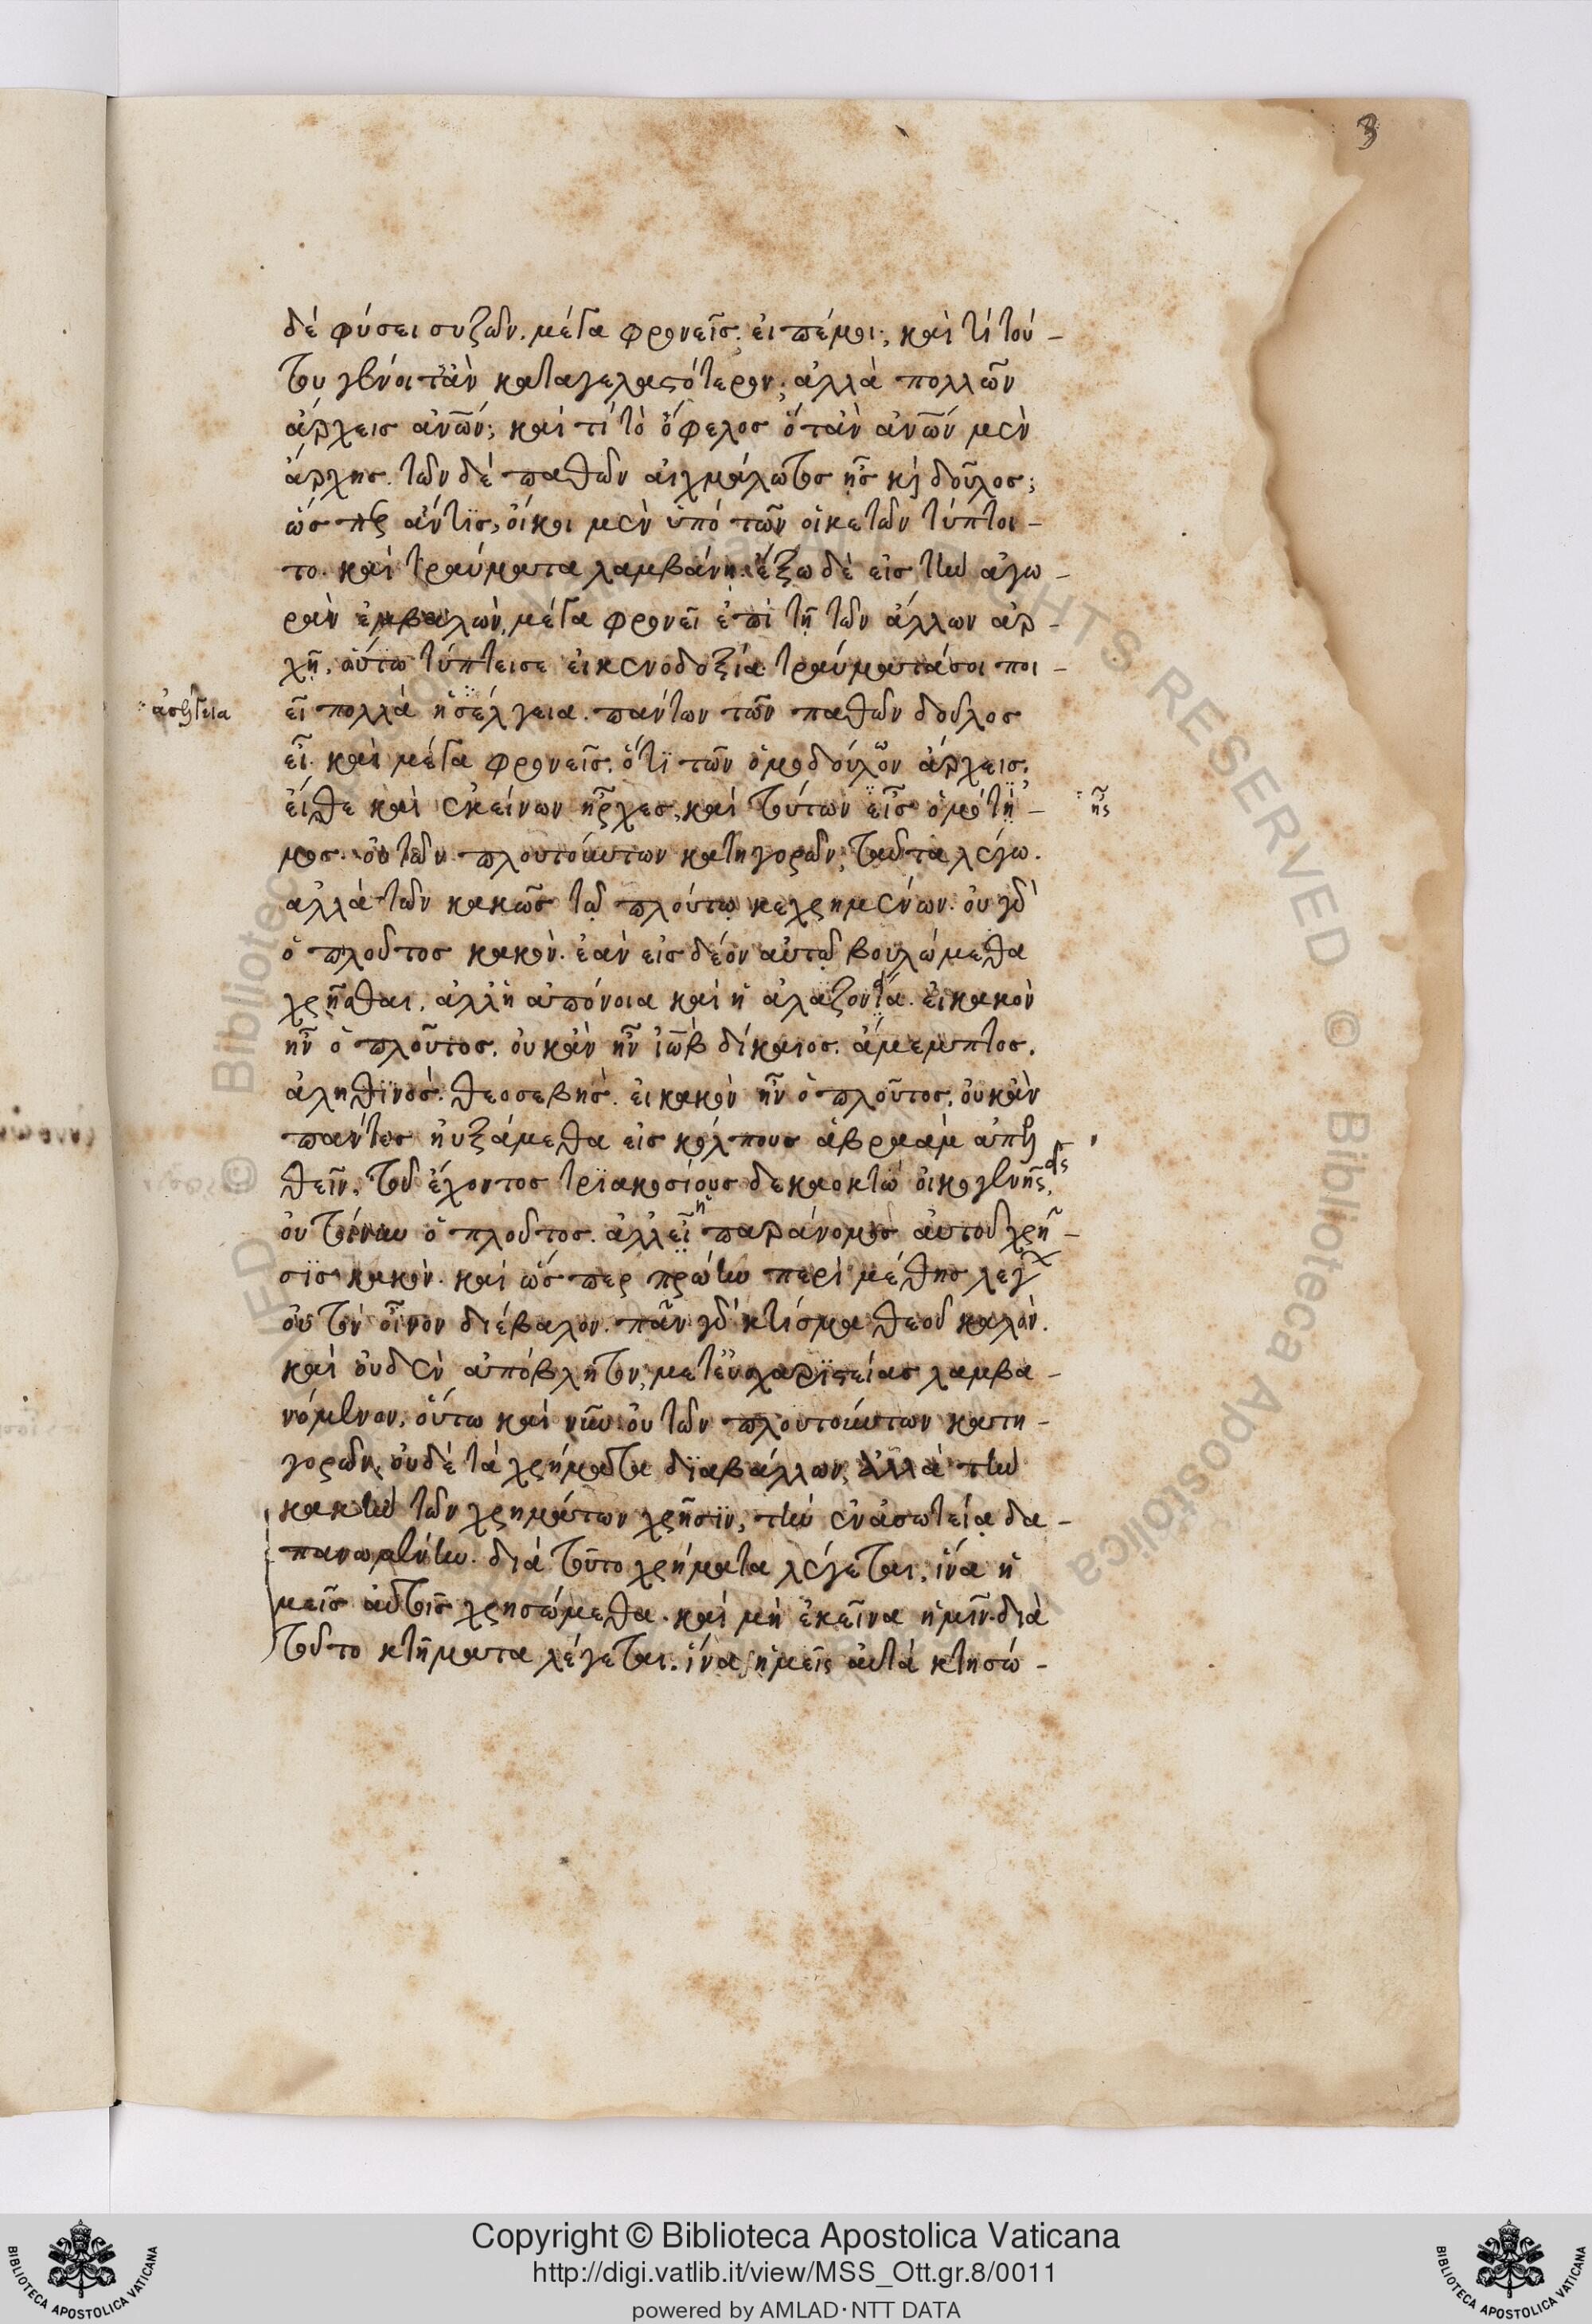 3
δὲ φύσει συζῶν. μέγα φρονεῖς; εἰπέμοι; καὶ τί τού-
του γένοιτἂν καταγελαστότερον; ἀλλὰ πολλῶν
ἄρχεις ἀνῶν; καὶ τί τὸ ὄφελος ὅτἀν ἀνῶν μὲν
ἄρχης. τῶν δὲ παθῶν αἰχμάλωτος ῇς κὶ δοῦλος;
ὥς πς ἄντις, οἴκοι μὲν ὑπὸ τῶν οἰκετῶν τύπτοι-
το. καὶ τραύματα λαμβάνη. ἔξω δὲ εἰς τὴν ἀγω-
ρὰν ἐμβαλὼν, μέγα φρονεῖ ἐπὶ τῇ τῶν ἄλλων ἀρ-
χῇ. οὕτω τύπτεισε εἰ κενοδοξία τραύματάσοι ποι-
εῖ πολλὰ ἡσέλγεια. πάντων τῶν παθῶν δοῦλος
ἀσέλγεια
εἶ. καὶ μέγα φρονεῖς. ὅτι τῶν ὁμοδούλων ἄρχεις.
εἴθε καὶ ἐκείνων ἦρχες, καὶ τούτων εἶς ὁμότη-
ῆς
μος. οὐ τῶν πλουτούντων κατηγορῶν, ταῦτα λέγω.
ἀλλὰ τῶν κακῶς τῷ πλούτῳ κεχρημένων. οὐ γὰ
ὁ πλοῦτος κακὸν. ἐὰν εἰς δέον αὐτῷ βουλώμεθα
χρῆσθαι, ἀλλἡ ἀπόνοια καὶ ἡ ἀλαζονεία. εἰ κακὸν
ἦν ὁ πλοῦτος. οὐκἂν ἦν ἰὼβ δίκαιος. ἄμεμπτος.
ἀληθινός. θεοσεβής. εἰ κακὸν ἦν ὁ πλοῦτος, οὐκἂν
πάντες ηὐξάμεθα εἰς κόλπους ἀβραὰμ ἀπελ
θεῖν, τοῦ ἔχοντος τριακοσίους δεκαοκτὼ οἰκογενῆς,
οὐ τοίνυν ὁ πλοῦτος. ἀλλεῖ ἡ παράνομος αὐτοῦ χρῆ-
σις κακὸν. καὶ ὥς περ πρώην περὶ μέθης λέγ
οὐ τὸν οἶνον διέβαλον. πᾶν γὰ κτίσμα θεοῦ καλόν.
καὶ οὐδὲν ἀπόβλητον, μετεὐχαριστείας λαμβα-
νόμενον, οὕτω καὶ νῦν οὐ τῶν πλουτούντων κατη-
γορῶν, οὐδὲ τὰ χρήματα διαβάλλων, ἀλλὰ τὴν
κακὴν τῶν χρημάτων χρῆσιν, τὴν ἐν ἀσωτείᾳ δα-
πανωμένην. διὰ τοῦτο χρήματα λέγεται, ἵνα ἡ
μεῖς αὐτοῖς χρησώμεθα. καὶ μὴ ἐκεῖνα ἡμῖν. διὰ
τοῦτο κτήματα λέγεται. ἵνα ἡμεῖς αὐτὰ κτησώ-
Copyright © Biblioteca Apostolica Vaticana
http://digi.vatlib.it/view/MSS_Ott.gr.8/0011
powered by AMLAD·NTT DATA
BIBLIOTECA APOSTOLICA VATICANA
BIBLIOTECA APOSTOLICA VATICANA